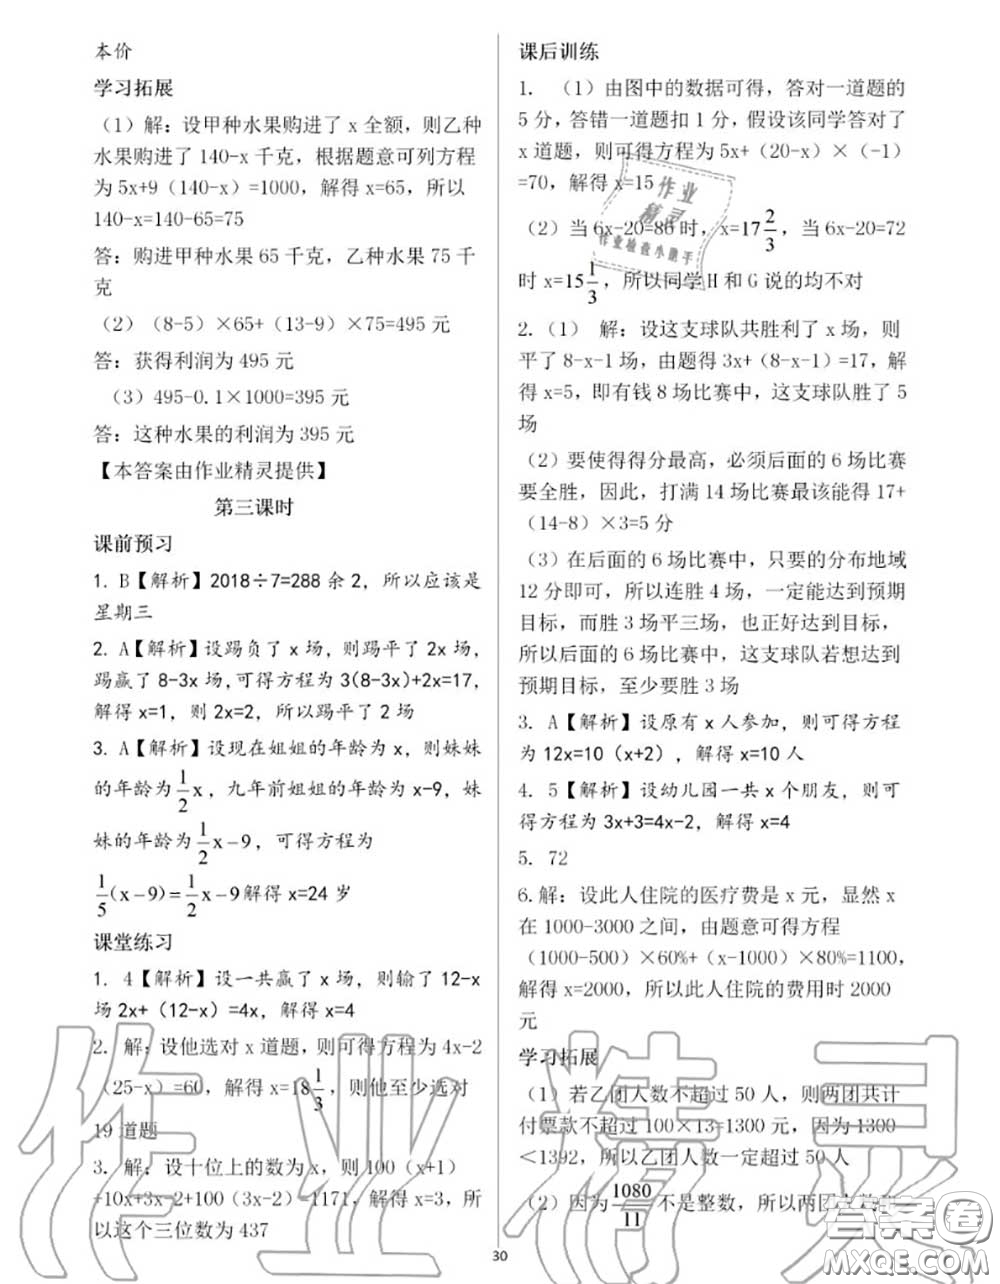 本价
学习拓展
（1）解：设甲种水果购进了 x 全额，则乙种
水果购进了 140-x 千克，根据题意可列方程
为 5x+9（140-x）=1000，解得 x=65，所以
140-x=140-65=75
答：购进甲种水果 65 千克，乙种水果 75 千
克
（2）（8-5）×65+（13-9）×75=495 元
答：获得利润为 495 元
（3）495-0.1×1000=395 元
答：这种水果的利润为 395 元
【本答案由作业精灵提供】
第三课时
课前预习
1. B【解析】2018÷7=288 余 2，所以应该是
星期三
2. A【解析】设踢负了 x 场，则踢平了 2x 场，
踢赢了 8-3x 场，可得方程为 3(8-3x)+2x=17，
解得 x=1，则 2x=2，所以踢平了 2 场
3. A【解析】设现在姐姐的年龄为 x，则妹妹
的年龄为 1/2 x，九年前姐姐的年龄为 x-9，妹
妹的年龄为 1/2 x－9，可得方程为
1/5 (x－9)= 1/2 x－9 解得 x=24 岁
课堂练习
1. 4【解析】设一共赢了 x 场，则输了 12-x
场 2x+（12-x）=4x，解得 x=4
2. 解：设他选对 x 道题，则可得方程为 4x-2
（25-x）=60，解得 x=18 1/3，则他至少选对
19 道题
3. 解：设十位上的数为 x，则 100（x+1）
+10x+3x-2+100（3x-2）=1171，解得 x=3，所
以这个三位数为 437
课后训练
1. （1）由图中的数据可得，答对一道题的
5 分，答错一道题扣 1 分，假设该同学答对了
x 道题，则可得方程为 5x+（20-x）×（-1）
=70，解得 x=15
（2）当 6x-20=86 时，x=17 2/3，当 6x-20=72
时 x=15 1/3，所以同学 H 和 G 说的均不对
2.（1） 解：设这支球队共胜利了 x 场，则
平了 8-x-1 场，由题得 3x+（8-x-1）=17，解
得 x=5，即有钱 8 场比赛中，这支球队胜了 5
场
（2）要使得得分最高，必须后面的 6 场比赛
要全胜，因此，打满 14 场比赛最该能得 17+
（14-8）×3=5 分
（3）在后面的 6 场比赛中，只要的分布地域
12 分即可，所以连胜 4 场，一定能达到预期
目标，而胜 3 场平三场，也正好达到目标，
所以后面的 6 场比赛中，这支球队若想达到
预期目标，至少要胜 3 场
3. A【解析】设原有 x 人参加，则可得方程
为 12x=10（x+2），解得 x=10 人
4. 5【解析】设幼儿园一共 x 个朋友，则可
得方程为 3x+3=4x-2，解得 x=4
5. 72
6.解：设此人住院的医疗费是 x 元，显然 x
在 1000-3000 之间，由题意可得方程
（1000-500）×60%+（x-1000）×80%=1100，
解得 x=2000，所以此人住院的费用时 2000
元
学习拓展
（1）若乙团人数不超过 50 人，则两团共计
付票款不超过 100×13=1300 元，因为 1300
＜1392，所以乙团人数一定超过 50 人
（2）因为 1080/11 不是整数，所以两团
30
作业精灵
作业检查小助手
作业精灵
答案卷
MXQE.COM